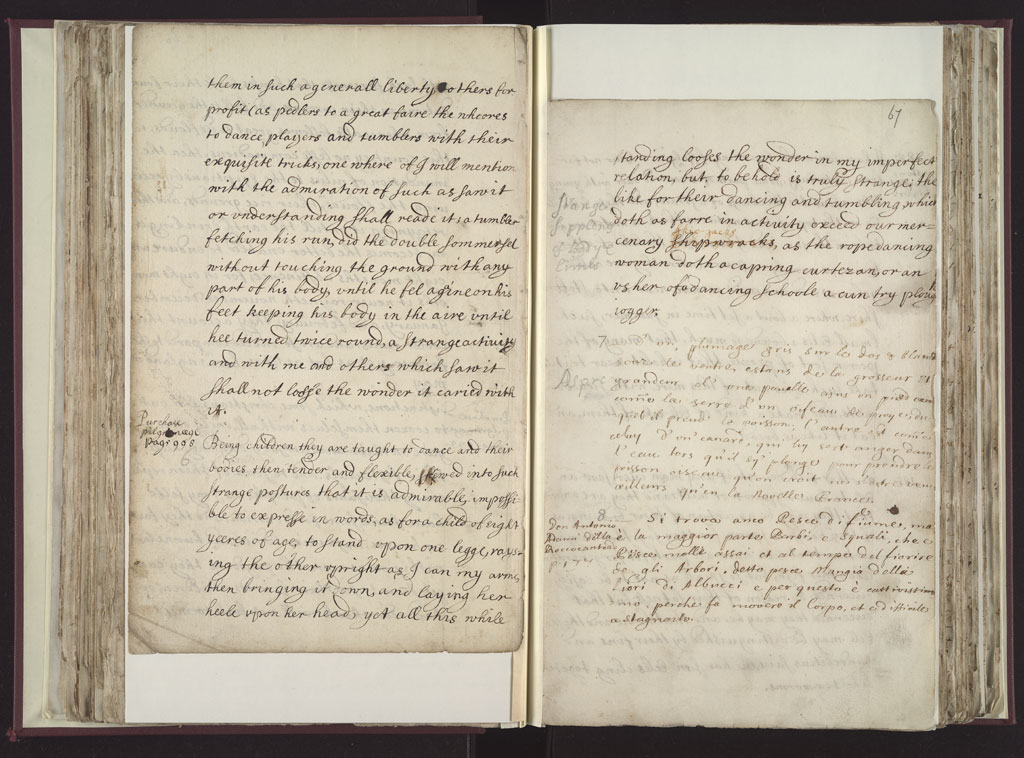 them in such a generall liberty to others for
profit (as pedlers to a great faire the whoores
to dance players and tumblers with their
exquisite tricks, one where of I will mention
with the admiration of such as saw it
or vnderstanding shall reade it: a tumbler
fetching his run, did the double sommersel
without touching the ground with any
part of his body, vntil he fel agine on his
feet keeping his body in the aire vntil
hee turned twice round, a strange activity
and with me and others which saw it
shall not loose the wonder it caried with
it.
Purchase
pilgrimage
pag: 998
6
Being children they are taught to dance and their
bodies then tender and flexible, skrewed into such
strange postures that it is admirable, impossi-
ble to expresse in words, as for a child of eight
yeeres of age, to stand vpon one legge, rays-
ing the other vpright as I can my arme,
then bringing it down, and laying her
heele vpon her head, yet all this while
67
standing looses the wonder in my imperfect
relation, but, to behold is truly strange; the
like for their dancing and tumbling which
doth as farre in activity exceed our mer-
cenary shipwracks, as the rope dancing
woman doth a capring curtezan, or an
vsher of a dancing schoole a cuntry plough
iogger.
7
plumage gris sur le dos & blanc
sous le ventre, estans de la grosseur et
grandeur d'une poulle, ayns un pied
comme la serre d'un oiseau de proye, du
quel il prend le poisson: l'autre
celuy d'un canard, qui luy sert
l'eau lors qu'il s'y plonge pour prendre le
poisson oiseau qu'on croit
ailleurs qu'en la Novelle France.
8
Don Antonio
della
Si trova anco Pesce di fiume, ma
è la maggior parte Barbi, e Squali, che è
Pisce molle assai et al tempo del fiorire
de gli Arbori, detto pesce Mangia delli
fiori di Albucci e per questo è cattivissi-
mo, perche fa movere il Corpo, et è difficile
a stagnarlo.